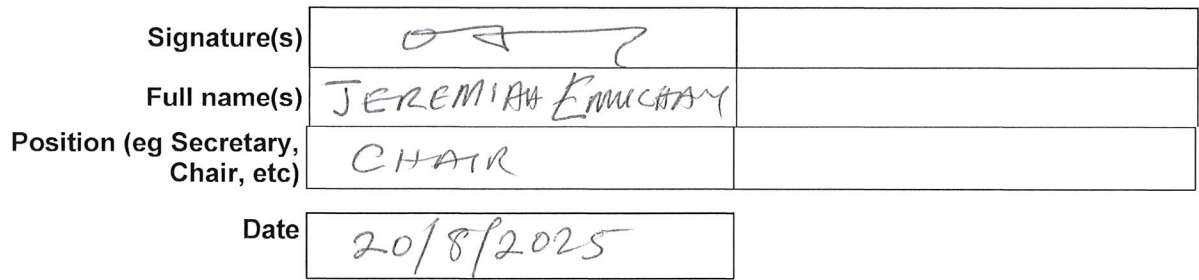 Signature(s)
Full name(s) JEREMIAH EMUCHAY
Position (eg Secretary,
Chair, etc) CHAIR
Date 20/8/2025